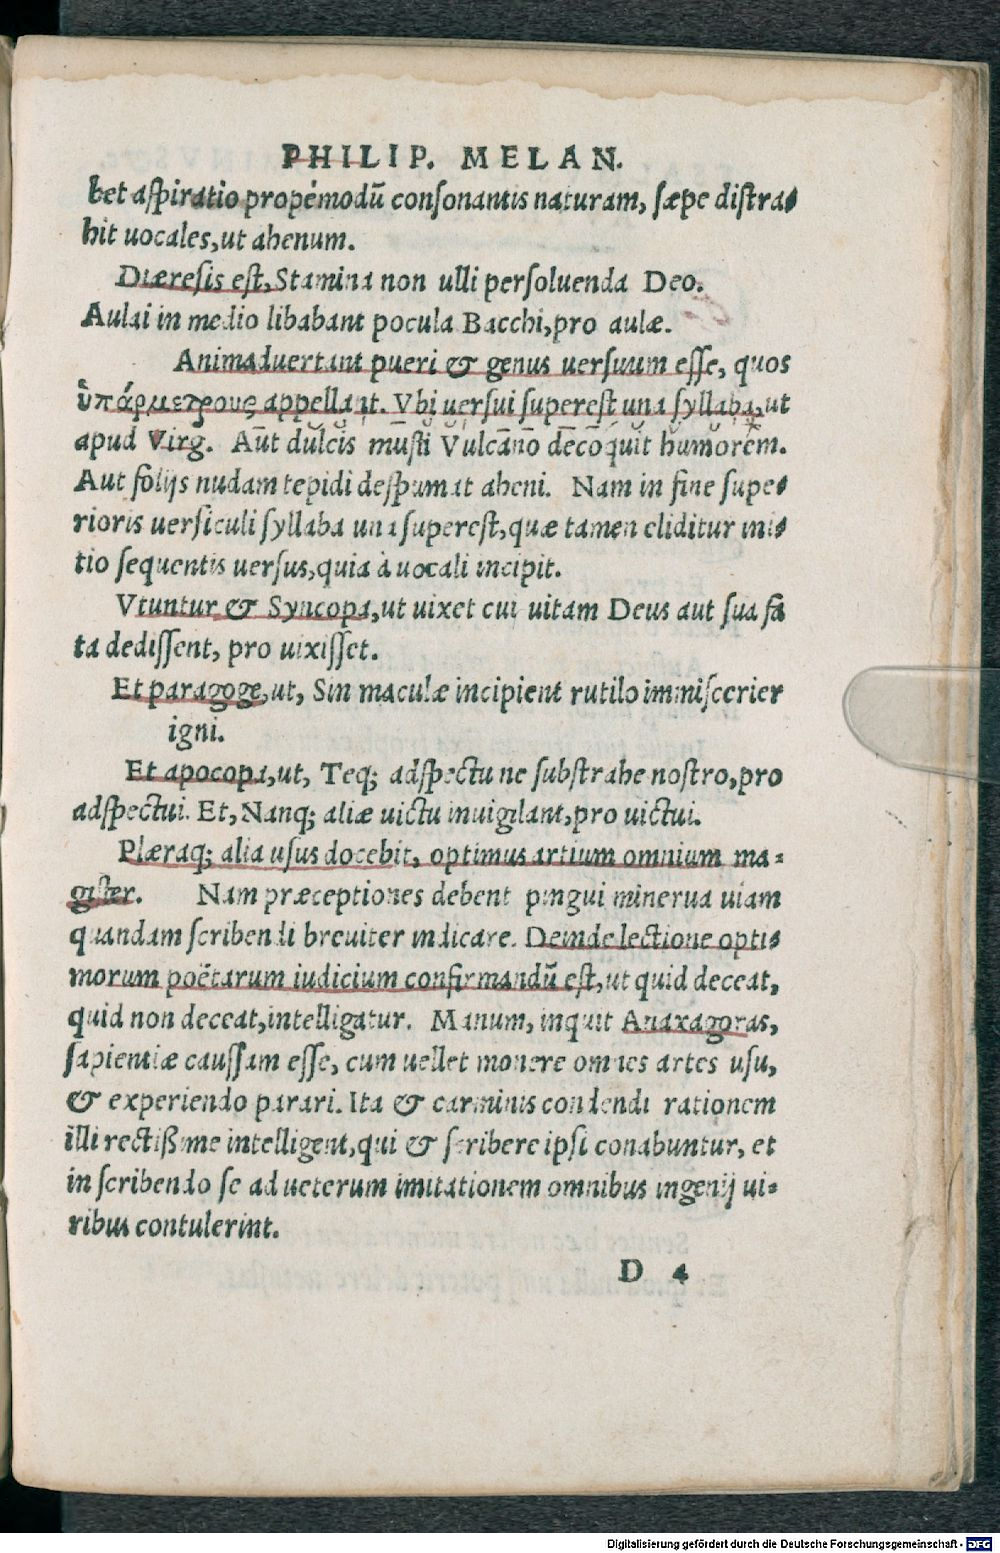 PHILIP. MELAN.
bet aſpiratio propémodũ conſonantis naturam, ſæpe diſtra⸗
hit uocales,ut ahenum.
Diæreſis eſt, Stamina non ulli perſoluenda Deo.
Aulai in medio libabant pocula Bacchi,pro aulæ.
Animaduertant pueri & genus uerſuum eſſe, quos
ὑπάρμετρους appellant. Vbi uerſui supereſt una ſyllaba,ut
apud Virg. Aut dulcis muſti Vulcano decoquit humorem.
Aut folijs nudam tepidi deſpumat aheni. Nam in fine supe⸗
rioris uerſiculi ſyllaba una supereſt,quæ tamen eliditur ini⸗
tio ſequentis uerſus,quia à uocali incipit.
Vtuntur & Syncopa,ut uixet cui uitam Deus aut sua fa
ta dediſſent, pro uixiſſet.
Et paragoge,ut, Sin maculæ incipient rutilo immiſcerier
igni.
Et apocopa,ut, Teq; adſpectu ne subſtrahe noſtro,pro
adſpectui. Et, Nanq; aliæ uictu inuigilant,pro uictui.
Plæraq; alia uſus docebit, optimus artium omnium ma⸗
giſter. Nam præceptiones debent pingui minerua uiam
quandam ſcribendi breuiter indicare. Deinde lectione opti⸗
morum poëtarum iudicium confirmandũ eſt,ut quid deceat,
quid non deceat,intelligatur. Manum, inquit Anaxagoras,
ſapientiæ cauſſam eſſe, cum uellet monere omnes artes uſu,
& experiendo parari. Ita & carminis condendi rationem
illi rectißime intelligent,qui & ſcribere ipſi conabuntur, et
in ſcribendo ſe ad ueterum imitationem omnibus ingenij ui⸗
ribus contulerint.
D 4
Digitalisierung gefördert durch die Deutsche Forschungsgemeinschaft - DFG